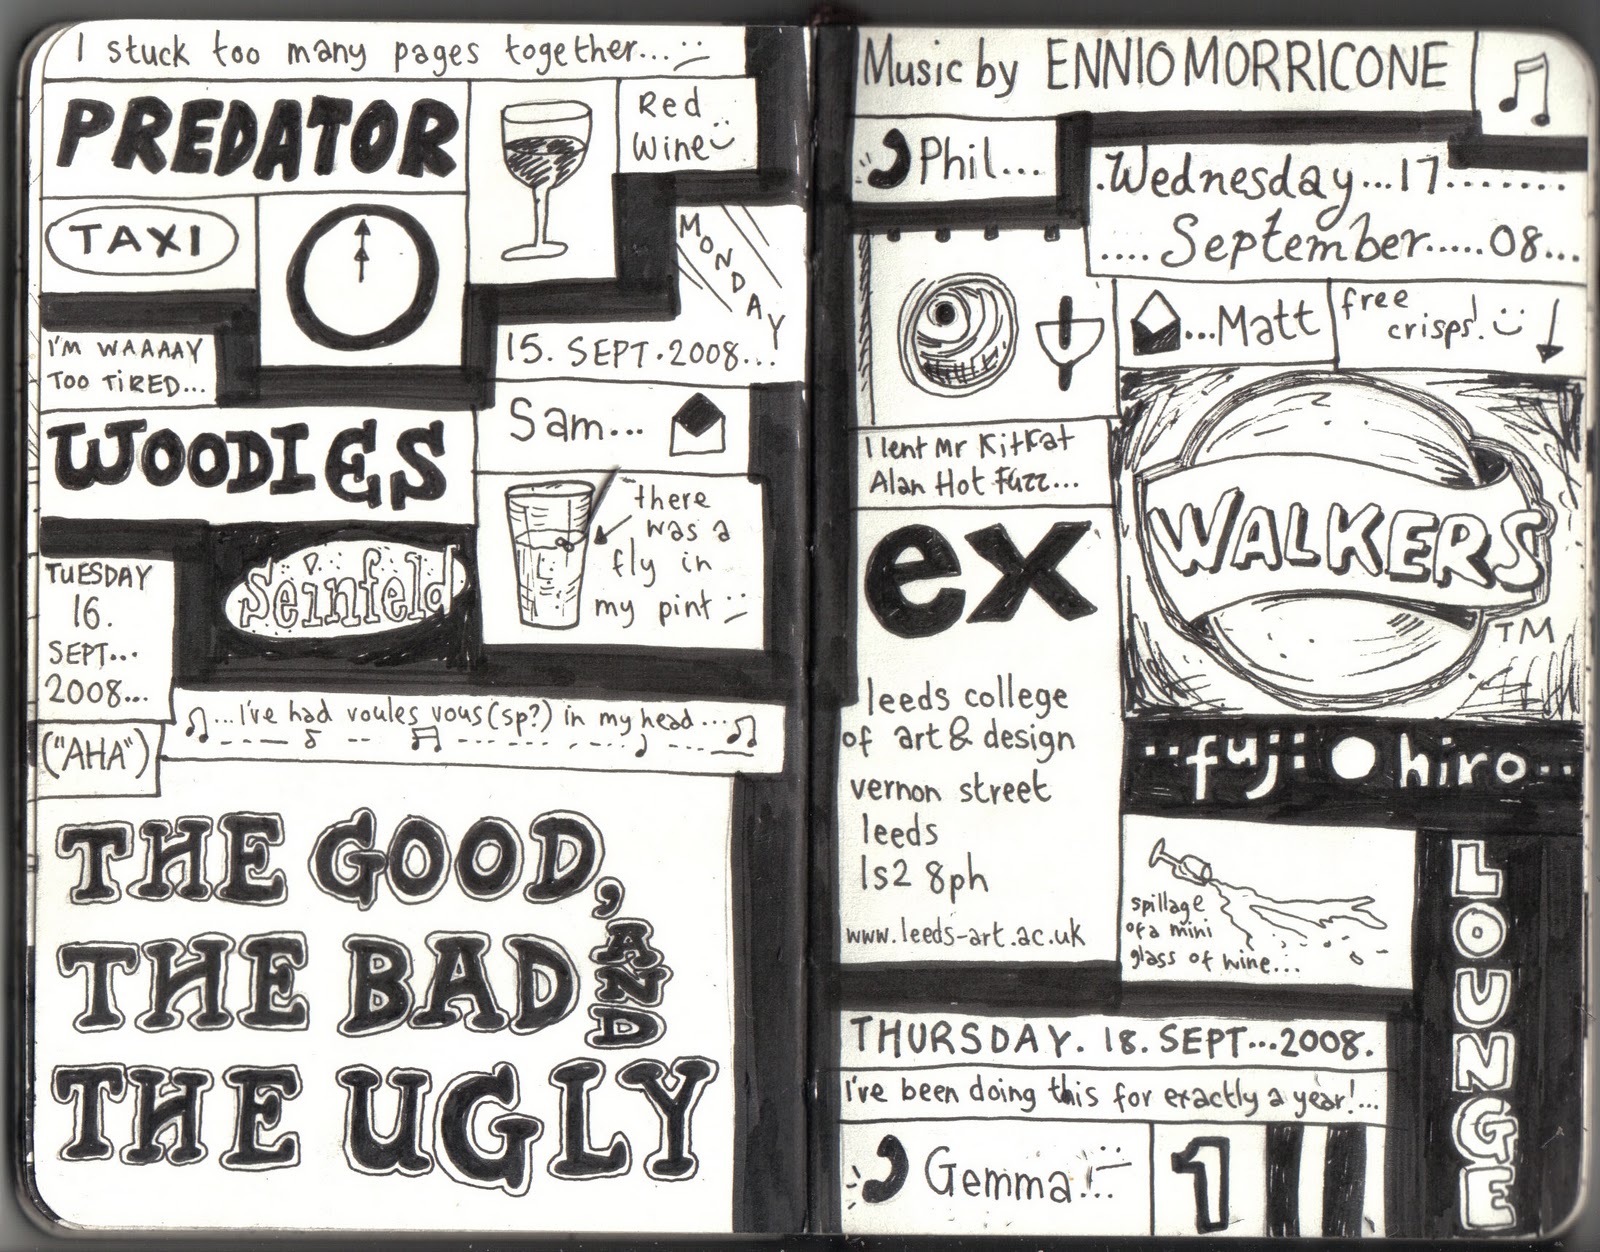 I stuck too many pages together... :(
PREDATOR
Red
Wine :)
TAXI
MONDAY
15. SEPT. 2008...
I'M WAAAAY
TOO TIRED...
Sam...
WOODIES
there
was a
fly in
my pint :(
Seinfeld
TUESDAY
16.
SEPT...
2008...
...I've had voules vous (sp?) in my head...
("AHA")
THE GOOD,
THE BAD AND
THE UGLY
Music by ENNIO MORRICONE
Phil...
.Wednesday...17.......
....September.....08...
...Matt
free
crisps! :)
I lent Mr KitKat
Alan Hot Fuzz...
WALKERS
TM
ex
leeds college
of art & design
vernon street
leeds
ls2 8ph
www.leeds-art.ac.uk
..fuji hiro..
spillage
of a mini
glass of wine...
LOUNGE
THURSDAY. 18. SEPT...2008.
I've been doing this for exactly a year!...
Gemma!...
1